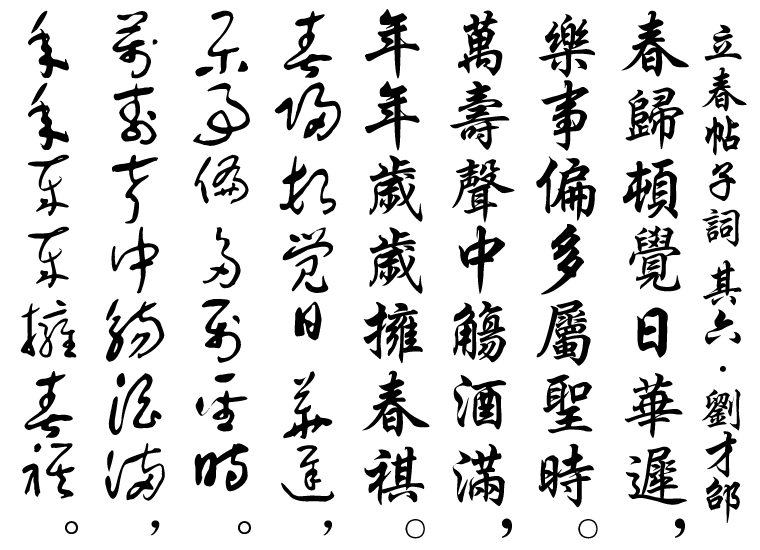 立春帖子詞 其六·劉才邵
春歸頓覺日華遲，
樂事偏多屬聖時。
萬壽聲中觴酒滿，
年年歲歲擁春祺。
春歸頓覺日華遲，
樂事偏多屬聖時。
萬壽聲中觴酒滿，
年年歲歲擁春祺。